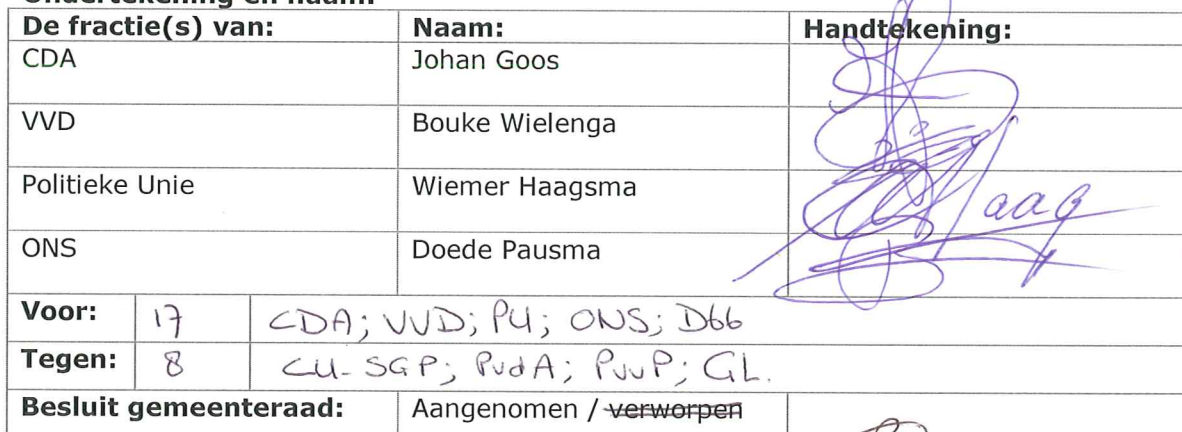 Ondertekening en naam:
De fractie(s) van: Naam: Handtekening:
CDA Johan Goos
VVD Bouke Wielenga
Politieke Unie Wiemer Haagsma
ONS Doede Pausma
Voor: 17 CDA; VVD; PU; ONS; D66
Tegen: 8 CU-SGP; PvdA; PvvP; GL.
Besluit gemeenteraad: Aangenomen / verworpen